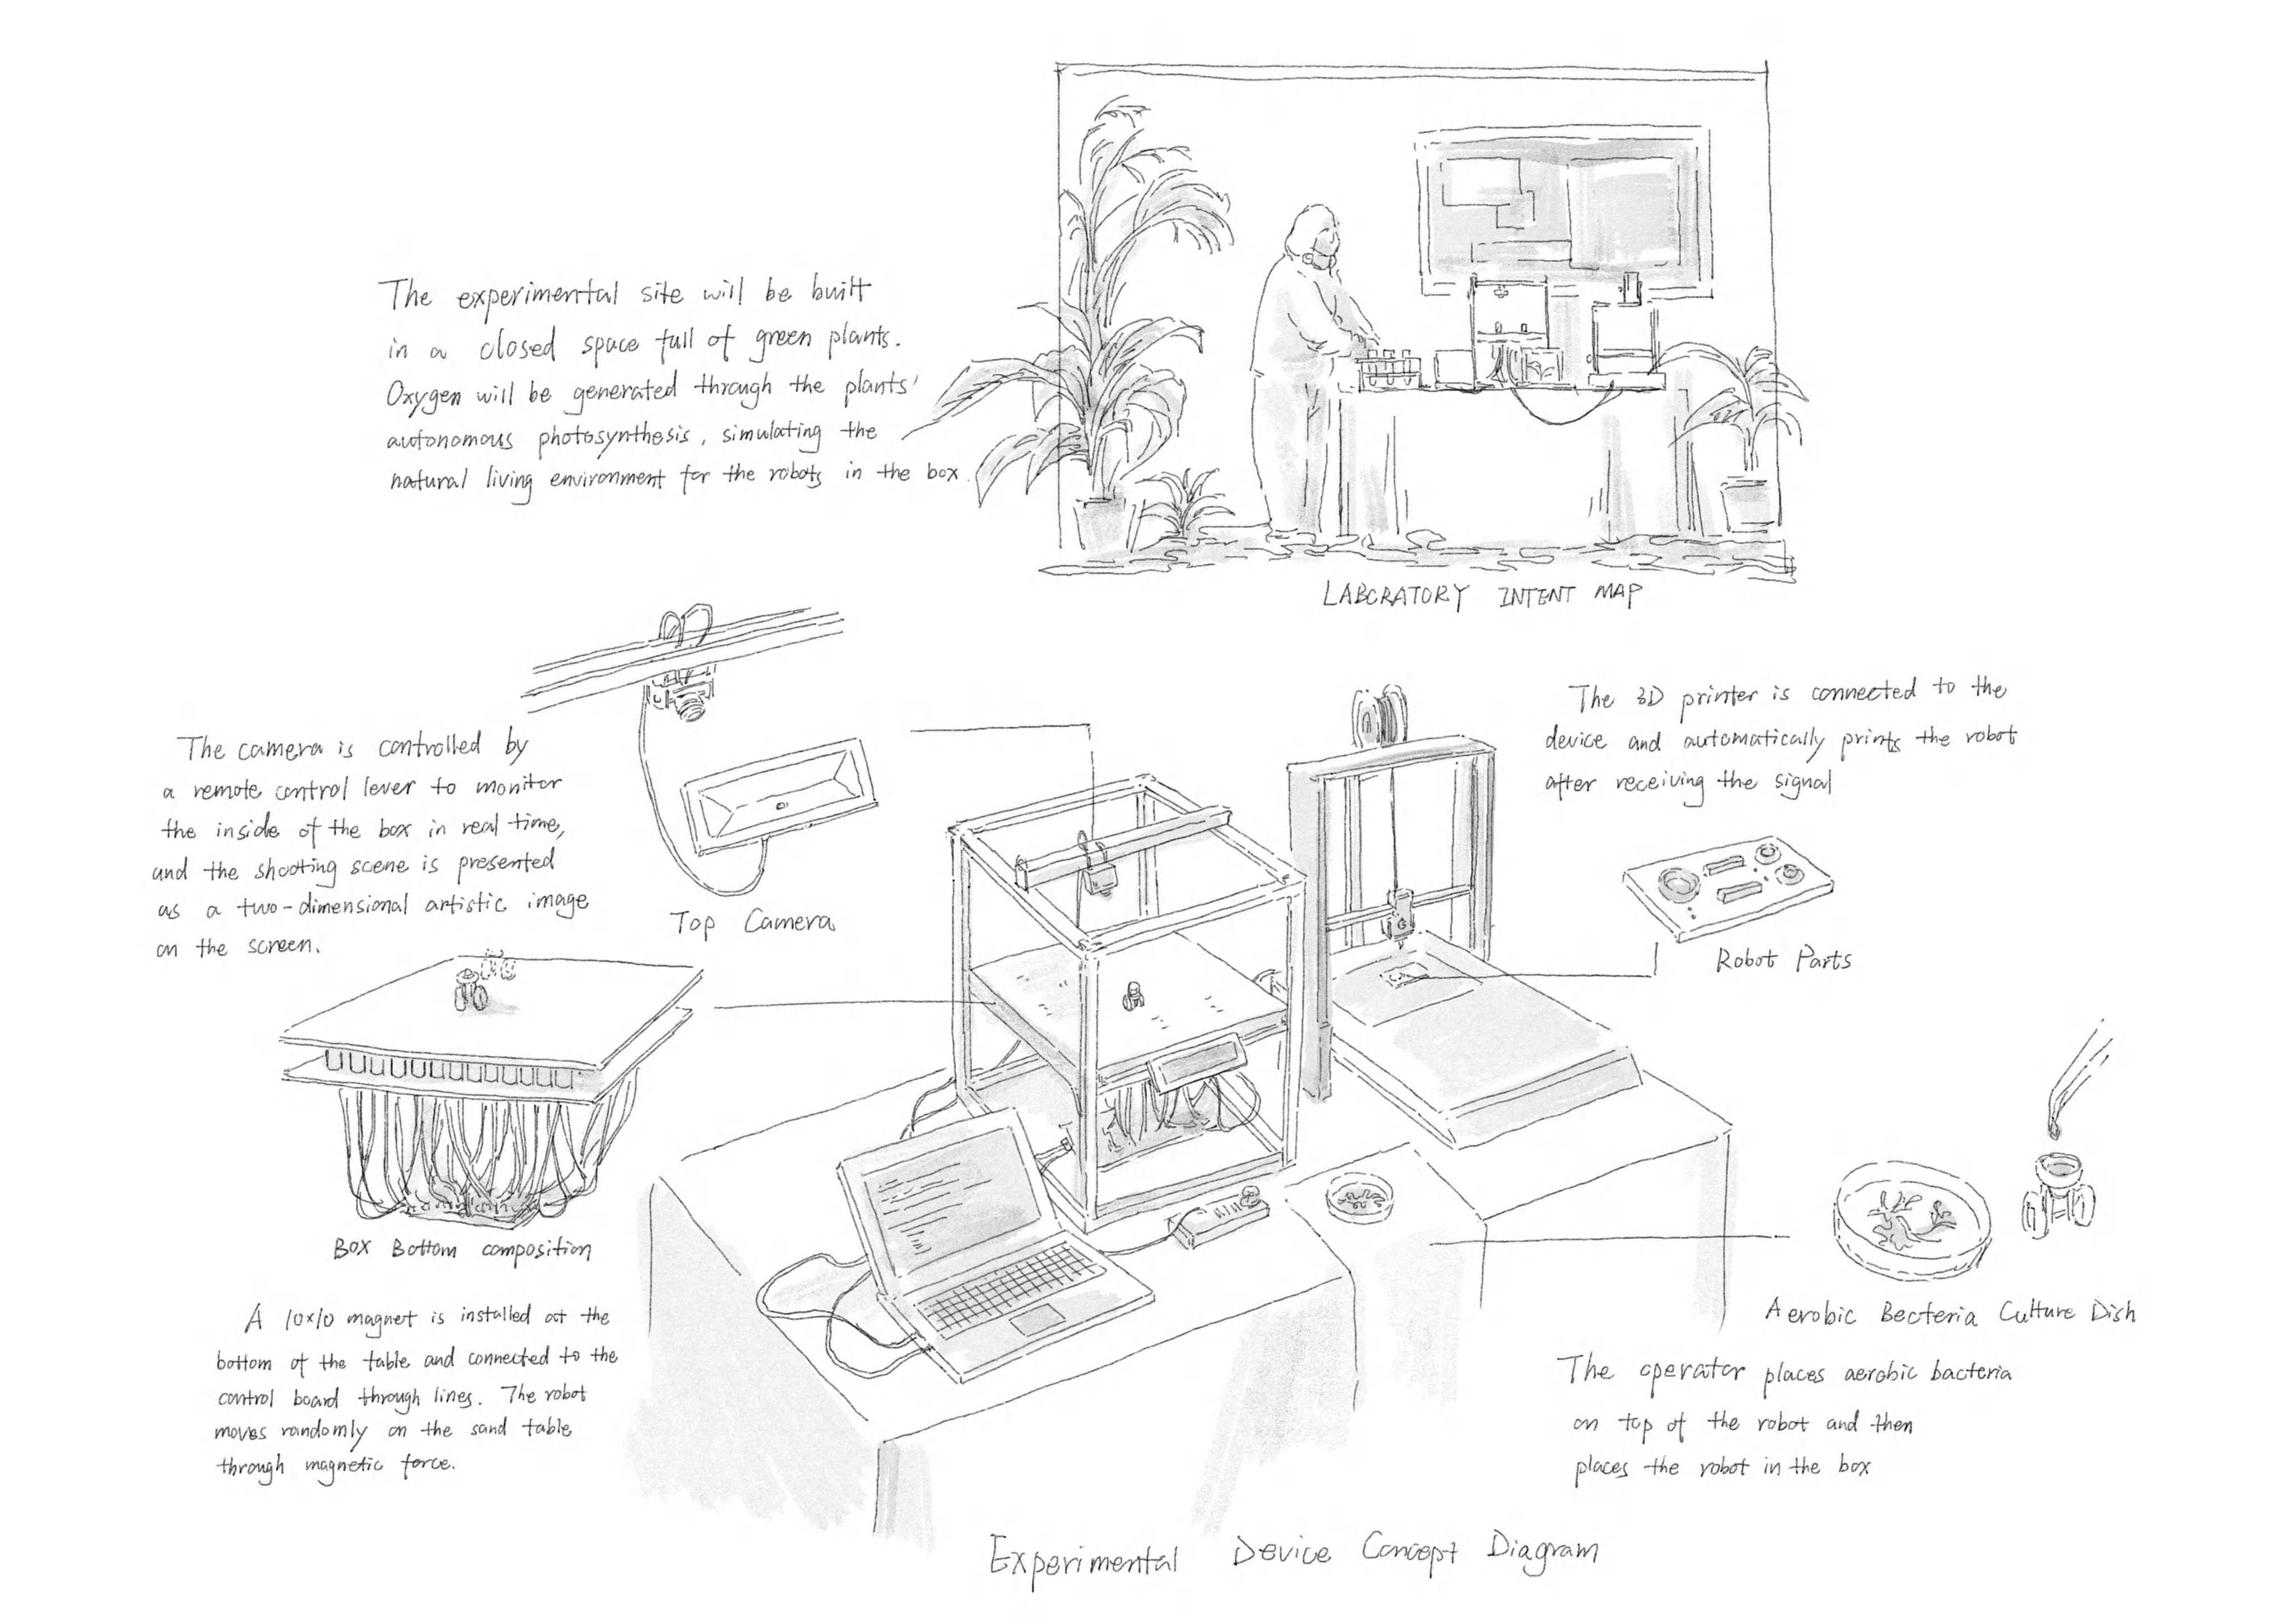 The experimental site will be built
in a closed space full of green plants.
Oxygen will be generated through the plants'
autonomous photosynthesis, simulating the
natural living environment for the robots in the box.
LABORATORY INTENT MAP
The camera is controlled by
a remote control lever to monitor
the inside of the box in real time,
and the shooting scene is presented
as a two-dimensional artistic image
on the screen.
Top Camera
The 3D printer is connected to the
device and automatically prints the robot
after receiving the signal
Robot Parts
Box Bottom composition
A 10x10 magnet is installed at the
bottom of the table and connected to the
control board through lines. The robot
moves randomly on the sand table
through magnetic force.
Aerobic Becteria Culture Dish
The operator places aerobic bacteria
on top of the robot and then
places the robot in the box
Experimental Device Concept Diagram